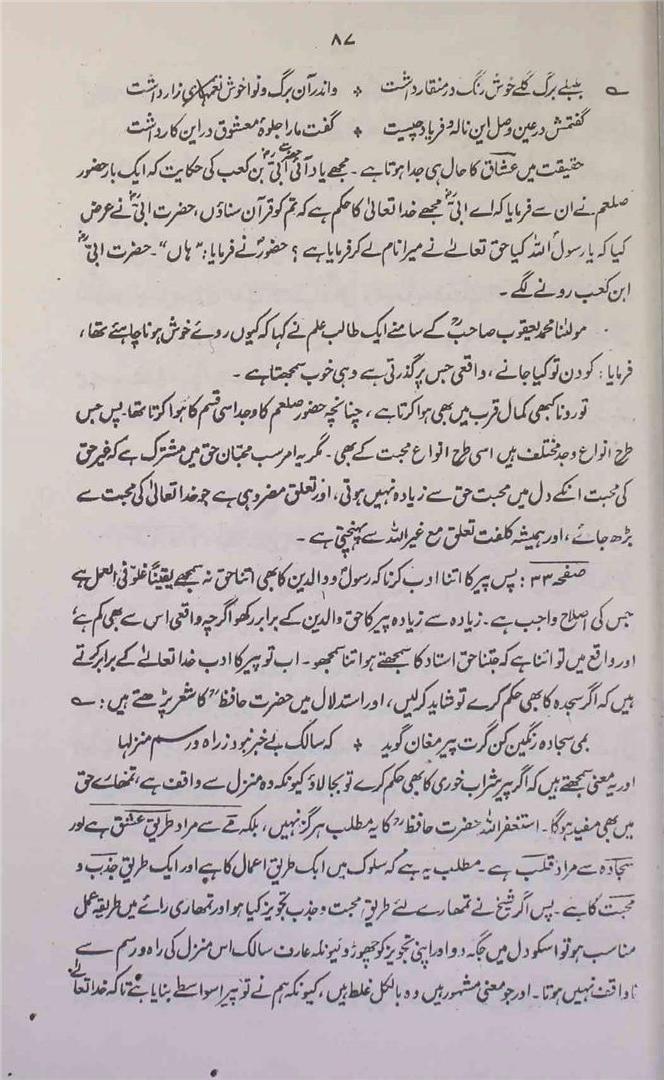 ۸۷
؎ بلبلے برگ گلے خوش رنگ در منقار داشت ؞ و اندر آں برگ و نوا خوش نغمہائے زار داشت
گفتمش در عین وصل ایں نالہ و فریاد چیست ؞ گفت مارا جلوۂ معشوق در ایں کار داشت
حقیقت میں عشاق کا حال ہی جدا ہوتا ہے۔ مجھے یاد آئی حضرت ابیؓ بن کعب کی حکایت کہ ایک بار حضور
صلعم نے ان سے فرمایا کہ اے ابیؓ مجھے خدا تعالیٰ کا حکم ہے کہ تم کو قرآن سناؤں، حضرت ابیؓ نے عرض
کیا کہ یا رسول اللہ کیا حق تعالےٰ نے میرا نام لے کر فرمایا ہے؟ حضورؐ نے فرمایا: "ہاں"۔ حضرت ابیؓ
ابن کعب رونے لگے۔
مولٰنا محمد یعقوب صاحبؒ کے سامنے ایک طالب علم نے کہا کہ کیوں روئے خوش ہونا چاہئے تھا،
فرمایا: کو دن تو کیا جانے، واقعی جس پر گذرتی ہے وہی خوب سمجھتا ہے۔
تو رونا کبھی کمال قرب میں بھی ہوا کرتا ہے، چنانچہ حضور صلعم کا وجد اسی قسم کا ہوا کرتا تھا۔ پس جس
طرح انواع وجد مختلف ہیں اسی طرح انواع محبت کے بھی۔ مگر یہ امر سب محبّان حق میں مشترک ہے کہ غیر حق
کی محبت انکے دل میں محبت حق سے زیادہ نہیں ہوتی، اور تعلق مضر وہی ہے جو خدا تعالیٰ کی محبت سے
بڑھ جائے، اور ہمیشہ کلفت تعلق مع غیر اللہ سے پہنچتی ہے۔
صفحہ ۳۳: پس پیر کا اتنا ادب کرنا کہ رسولؐ و والدین کا بھی اتنا حق نہ سمجھے یقیناً غلو فی العمل ہے
جس کی اصلاح واجب ہے۔ زیادہ سے زیادہ پیر کا حق والدین کے برابر رکھو اگرچہ واقعی اس سے بھی کم ہے،
اور واقع میں تو اتنا ہے کہ جتنا حق استاد کا سمجھتے ہو اتنا سمجھو۔ اب تو پیر کا ادب خدا تعالےٰ کے برابر کرتے
ہیں کہ اگر سجدہ کا بھی حکم کرے تو شاید کرلیں، اور استدلال میں حضرت حافظؒ کا شعر پڑھتے ہیں: ؎
بمی سجادہ رنگین کن گرت پیر مغان گوید ؞ کہ سالک بے خبر نبود ز راہ و رسم منزلہا
اور یہ معنی سمجھتے ہیں کہ اگر پیر شراب خوری کا بھی حکم کرے تو بجا لاؤ کیونکہ وہ منزل سے واقف ہے، تمہارے حق
میں بھی مفید ہوگا۔ استغفر اللہ حضرت حافظؒ کا یہ مطلب ہرگز نہیں، بلکہ مے سے مراد طریق عشق ہے اور
سجادہ سے مراد قلب ہے۔ مطلب یہ ہے کہ سلوک میں ایک طریق اعمال کا ہے اور ایک طریق جذب و
محبت کا ہے۔ پس اگر شیخ نے تمھارے لئے طریق محبت و جذب تجویز کیا ہو اور تمھاری رائے میں طریقۂ عمل
مناسب ہو تو اسکو دل میں جگہ دو اور اپنی تجویز کو چھوڑ دو کیونکہ عارف سالک اس منزل کی راہ و رسم سے
ناواقف نہیں ہوتا۔ اور جو معنی مشہور ہیں وہ بالکل غلط ہیں، کیونکہ ہم نے تو پیر اسواسطے بنایا ہے تاکہ خدا تعالےٰ